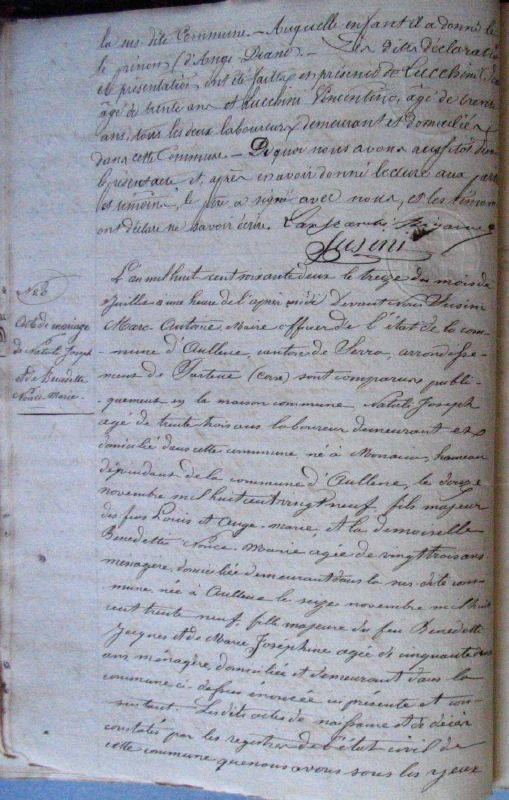 la sus-dite Commune. - Auquelle enfant il a donné le
le prénom (d'Ange Diano). - Les dites déclaratio
et présentation ont été faites en présence de Lucchini
âgé de trente ans et Lucchini Vincentino, âgé de trente
ans, tous les deux laboureurs demeurant et domiciliés
dans cette Commune. - De quoi nous avons aussitôt
le présent acte et, après en avoir donné lecture aux part
et témoins, le père a signé avec nous, et les témoins
ont déclaré ne savoir écrire.
Susini
N° 28
Acte de mariage
de Natali Joseph
et de Benedetti
Nonce Marie.
L'an mil huit cent soixante deux le treize du mois de
Juillet a une heure de l'après midi Devant Nous Susini
Marc Antoine Maire officier de l'état de la com-
mune d'Aullene, canton de Serra, arrondisse-
ment de Sartene (corse) sont comparus publi-
quement en la maison commune, Natali Joseph
agé de trente trois ans laboureur demeurant et
domicilié dans cette commune né à Monacia, hameau
dépendant de la commune d'Aullene, le douze
novembre mil huit cent vingt neuf, fils majeur
des feus Louis et Ange-marie, et la demoiselle
Benedetti Nonce Marie agée de vingt trois ans
menagère, domiciliée demeurant dans la sus-dite com-
mune, née à Aullene le seize novembre mil huit
cent trente neuf, fille majeure du feu Benedetti
Jacques et de Marie Joséphine agée de cinquante
ans ménagère, domiciliée et demeurant dans la
commune ci-dessus énoncée ici présente et con-
sentant. Les dits actes de naissance et de décès
constatés par les registres de l'état civil de
cette commune que nous avons sous les yeux